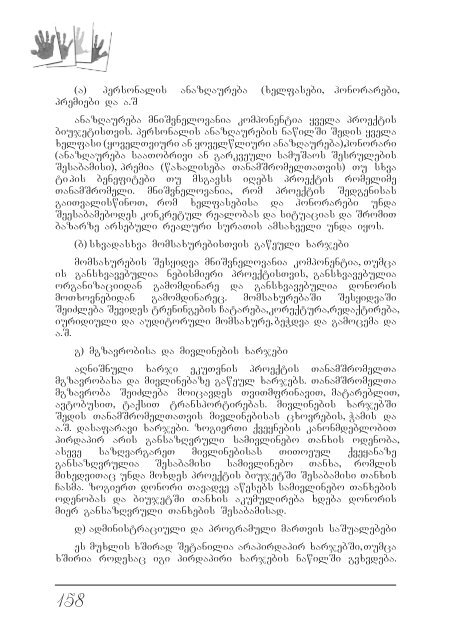 (ა) პერსონალის ანაზღაურება (ხელფასები, ჰონორარები,
პრემიები და ა.შ
ანაზღაურება მნიშვნელოვანია კომპონენტია ყველა პროექტის
ბიუჯეტისთვის. პერსონალის ანაზღაურების ნაწილში შედის ყველა
ხელფასი (ყოველთვიური ან ყოველწლიური ანაზღაურება),ჰონორარი
(ანაზღაურება საათობრივი ან გარკვეული სამუშაოს შესრულების
შესაბამისი), პრემია (წახალისება თანამშრომელთათვის) თუ სხვა
ტიპის ბენეფიტები თუ მსგავსს იღებს პროექტის რომელიმე
თანამშრომელი. მნიშვნელოვანია, რომ პროექტის შედგენისას
გაითვალისწინოთ, რომ ხელფასებისა და ჰონორარები უნდა
შეესაბამებოდეს კონკრეტულ რეალობას და სიტუაციას და შრომით
ბაზარზე არსებული რეალური სურათის ამსახველი უნდა იყოს.
(ბ) სხვადასხვა მომსახურებისთვის გაწეული ხარჯები
მომსახურების შესყიდვა მნიშვნელოვანია კომპონენტია, თუმცა
ის განსხვავებულია ნებისმიერი პროექტისთვის, განსხვავებულია
ორგანიზაციიდან გამომდინარე და განსხვავებულია დონორის
მოთხოვნებიდან გამომდინარეც. მომსახურებაში შესყიდვაში
შეიძლება შევიდეს ტრენინგების ჩატარება,კორექტურა,რედაქტირება,
იურიდიული და აუდიტორული მომსახურე, ბეჭდვა და გამოცემა და
ა.შ.
გ) მგზავრობისა და მივლინების ხარჯები
აღნიშნული ხარჯი ეკუთვნის პროექტის თანამშრომელთა
მგზავრობასა და მივლინებაზე გაწეულ ხარჯებს. თანამშრომელთა
მგზავრობა შეიძლება მოიცავდეს თვითმფრინავით, მატარებლით,
ავტობუსით, ტაქსით ტრანსპორტირებას. მივლინების ხარჯებში
შედის თანამშრომელთათვის მივლინებისას ცხოვრების, ჭამის და
ა.შ. დასაფარავი ხარჯები. ზოგიერთი ქვეყნების კანონმდებლობით
პირდაპირ არის განსაზღვრული სამივლინებო თანხის ოდენობა,
ასევე საზღვარგარეთ მივლინებისას თითოეულ ქვეყანაზე
განსაზღვრულია შესაბამისი სამივლინებო თანხა, რომლის
მიხედვითაც უნდა მოხდეს პროექტის ბიუჯეტში შესაბამისი თანხის
ჩასმა. ზოგიერთ დონორი თავადვე აწესებს სამივლინებო თანხების
ოდენობას და ბიუჯეტში თანხის აკუმულირება ხდება დონორის
მიერ განსაზღვრული თანხების შესაბამისად.
დ) ადმინისტრაციული და პროგრამული მართვის საშუალებები
ეს მუხლის ხშირად შეტანილია არაპირდაპირ ხარჯებში,თუმცა
ხშირია როდესაც იგი პირდაპირი ხარჯების ნაწილში გვხვდება.
158